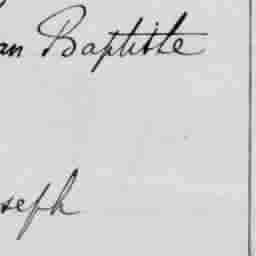 an Baptiste
seph